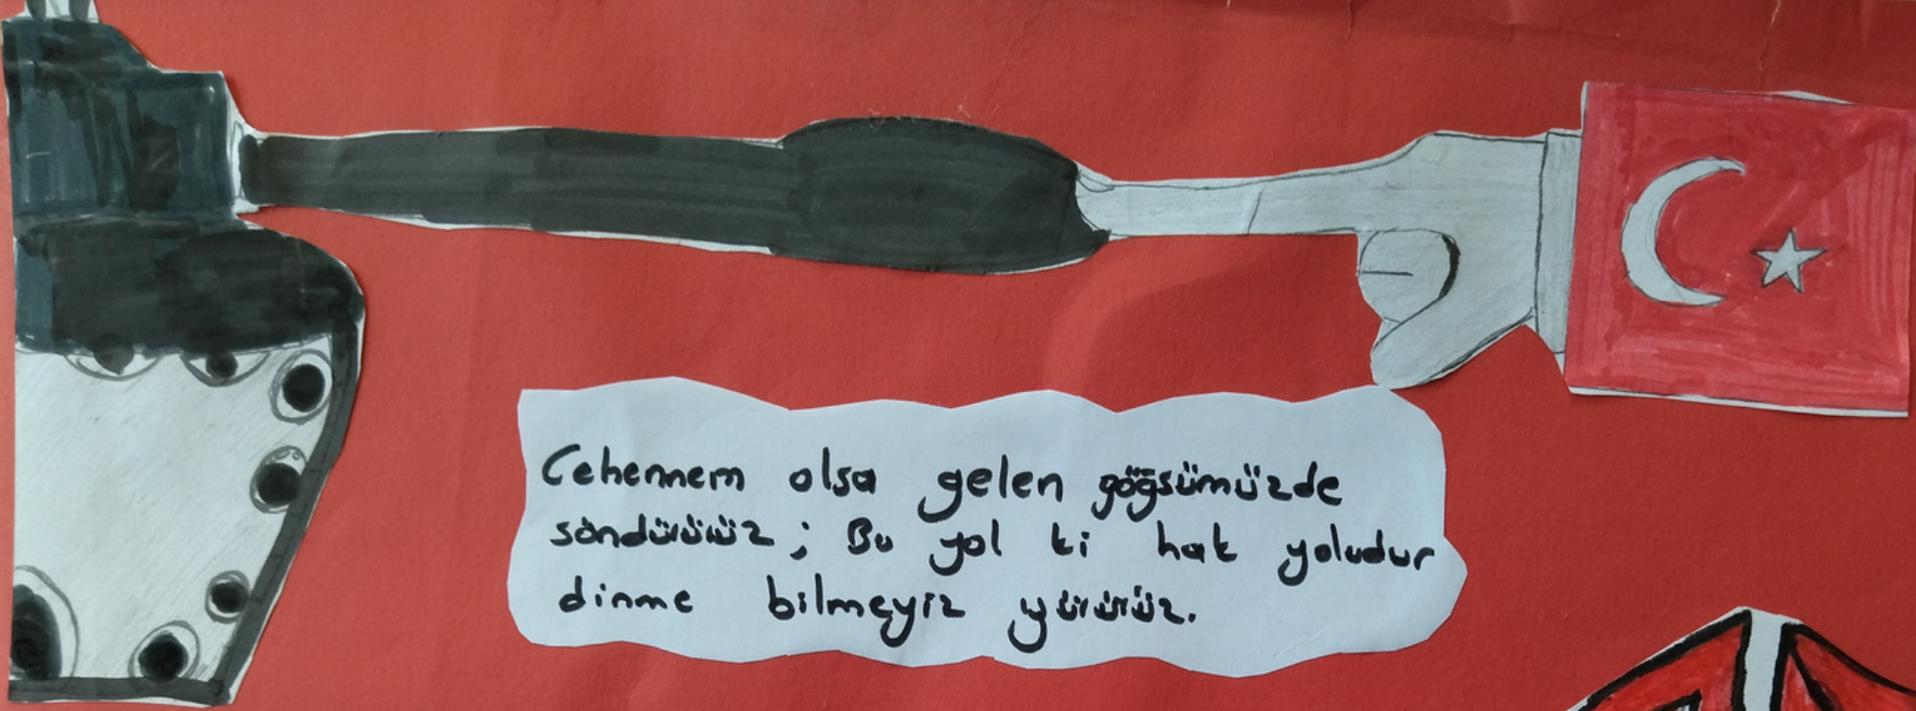 Cehennem olsa gelen göğsümüzde
söndürürüz; Bu yol ki hak yoludur
dinme bilmeyiz yürürüz.